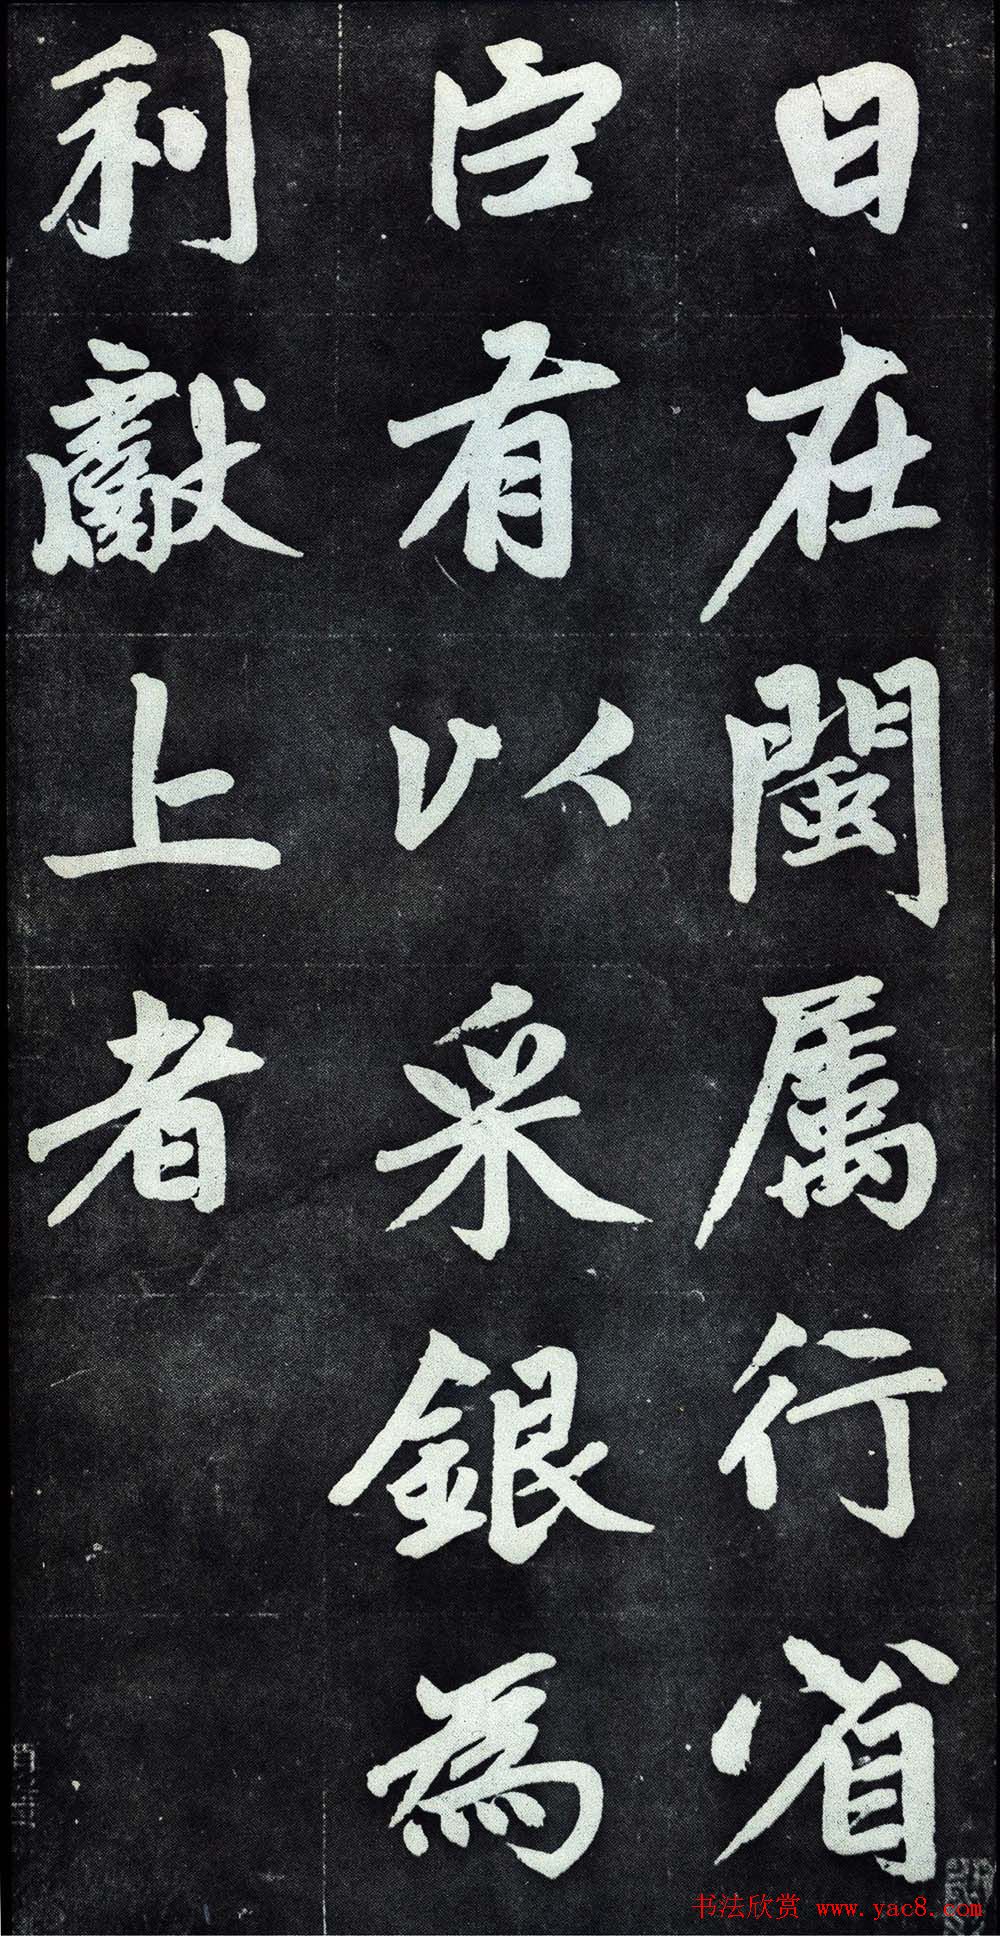 日在閩屬行省
臣有以采銀為
利獻上者
书法欣赏 www.yac8.com